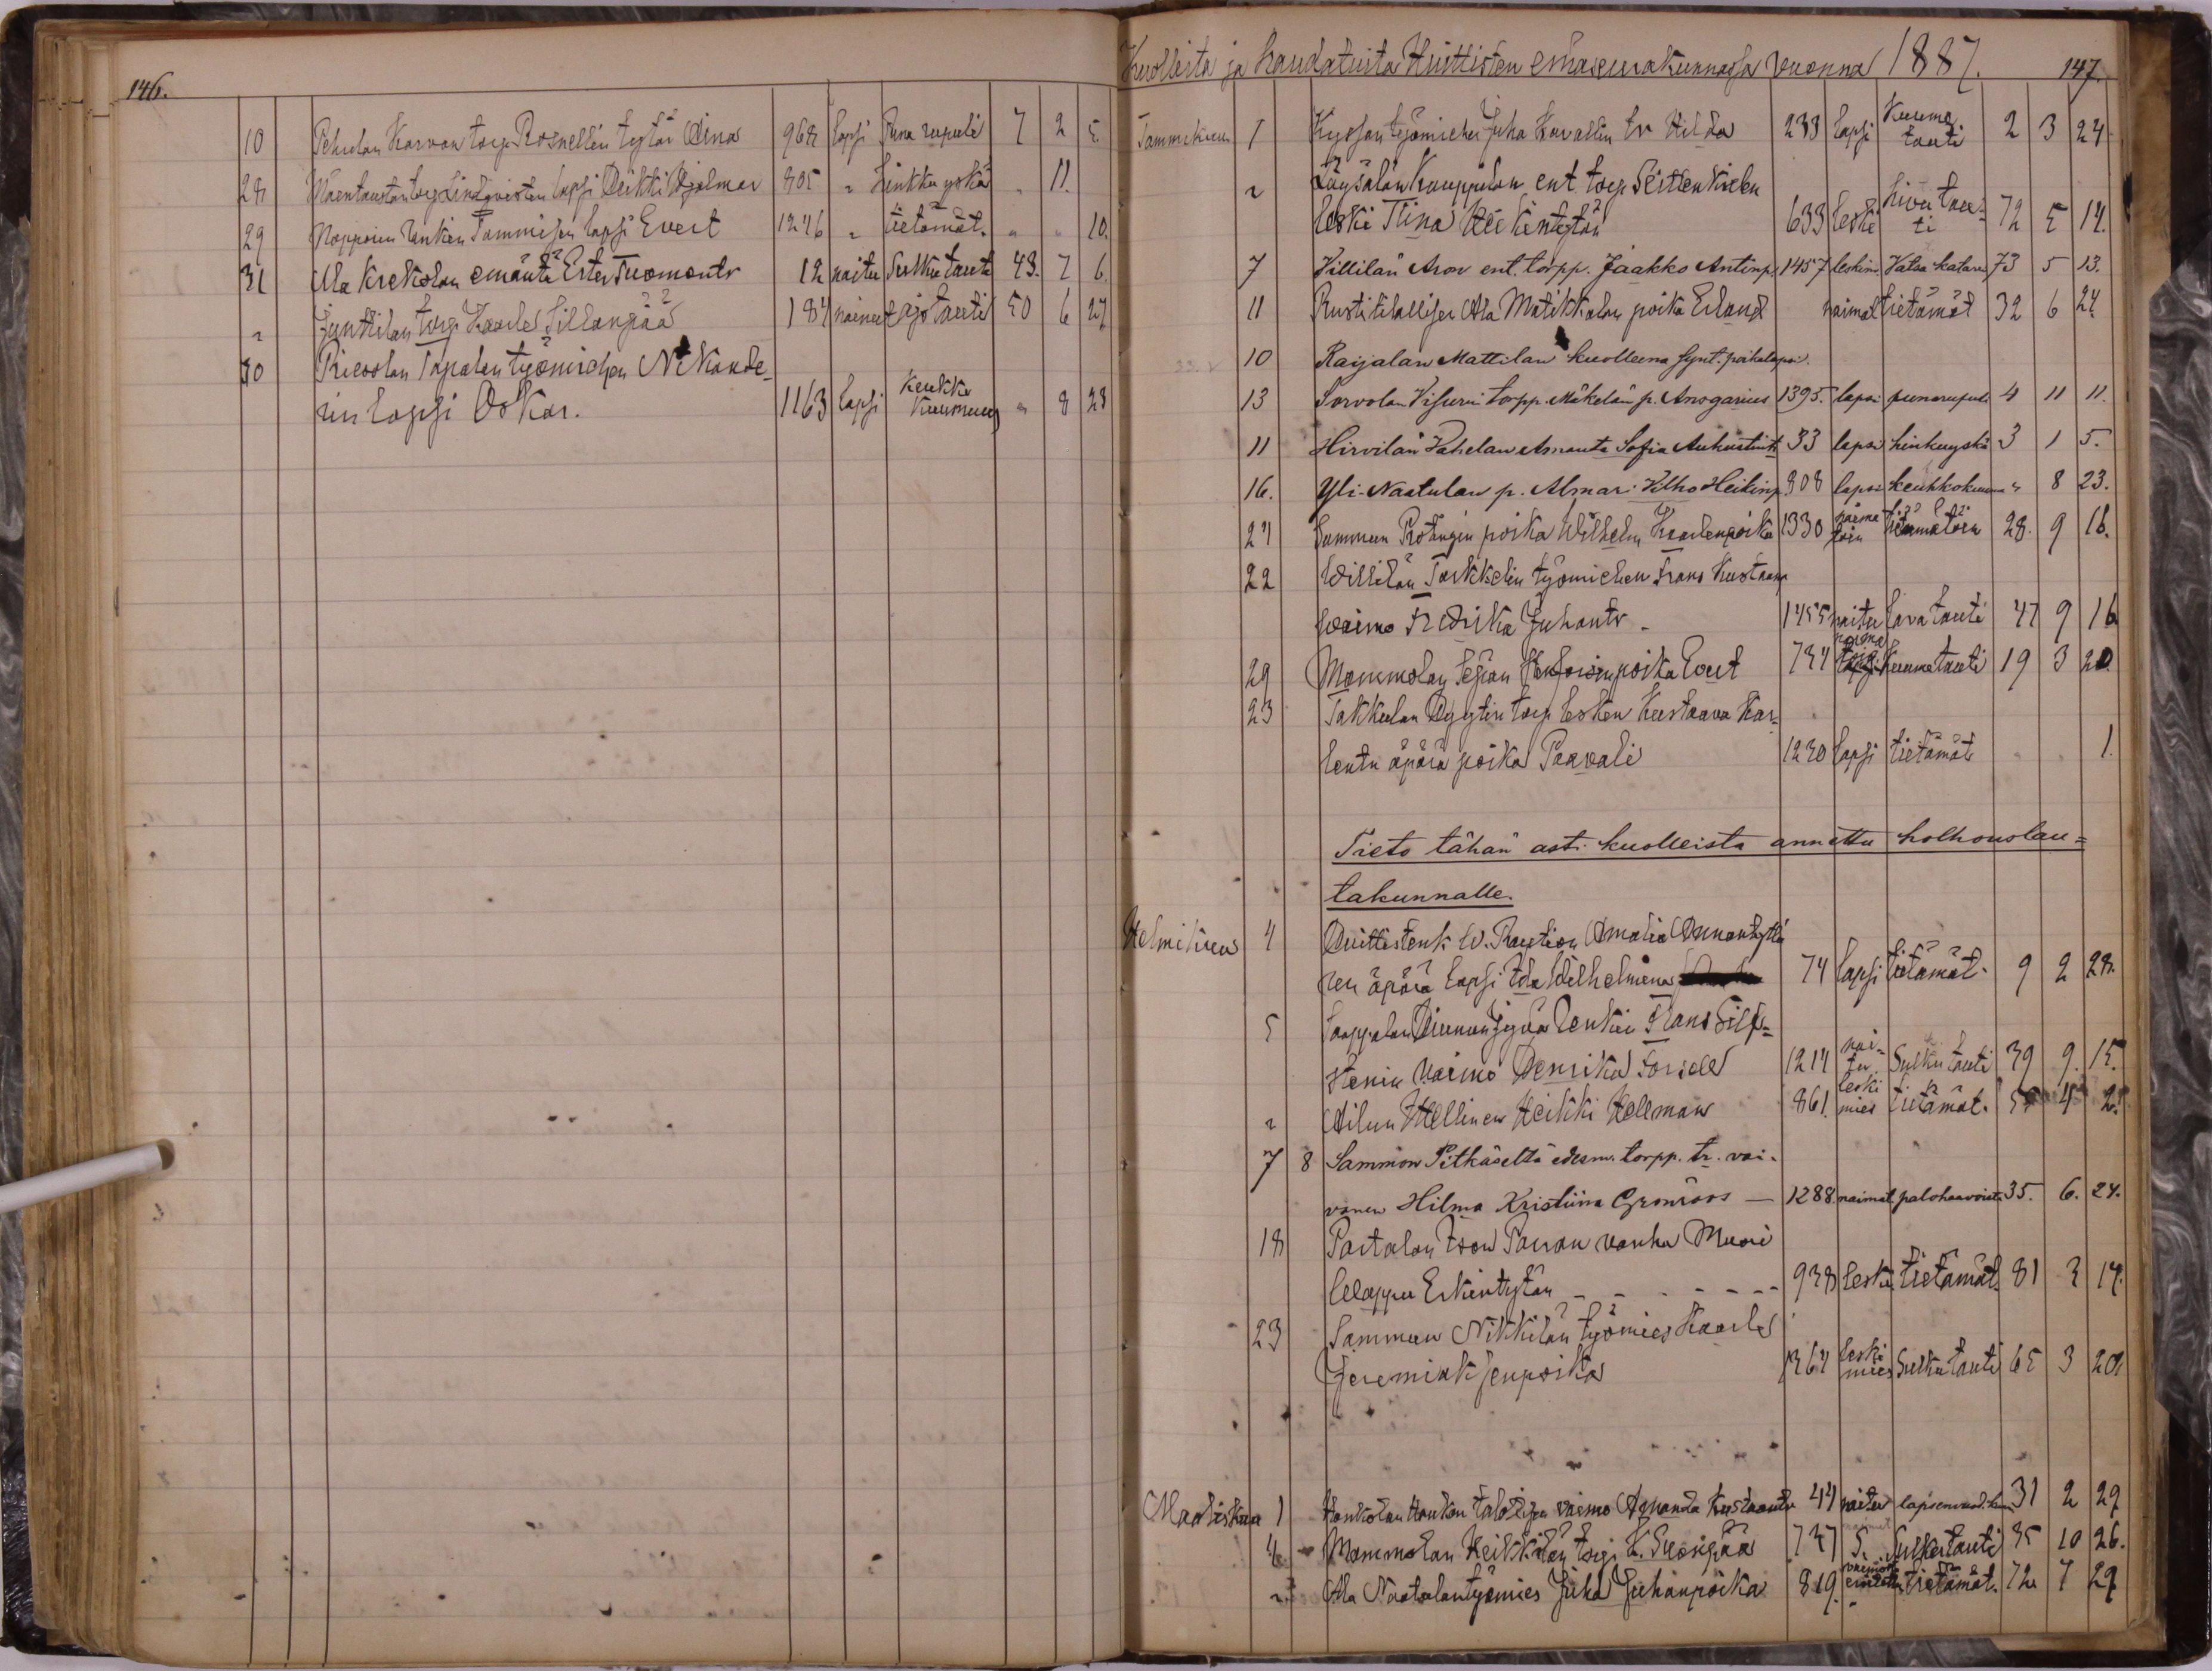 146.
10 Pehulan Karvan torp. Rosnellin tytär Aina 968 lapsi Puna rupuli 7 2 5.
28 Mäentaustan torp. Lindqvistin lapsi Heikki Hjalmar 805 " Hinkku yskä " 11.
29 Nopposen Rankin Tammisen lapsi Evert 1246 " tietämät. " " 10.
31 Ala Krekolan emäntä Ester Tuomontr 12 naitu Sulku tauti 43. 7 6.
" Junttilan torp. Kaarle Sillanpää 184 nainut Ajo tauti 50 6 27
30 Rieskolan Tapalan työmiehen N. Kande-
rin lapsi Oskar. 1163 lapsi Keuhko Kuumuus " 8 28
Kuolleita ja haudatuita Huittisten emäseurakunnassa vuonna 1887. 147.
Tammikuun 1 työmiehen Juha Kavallin tr Hilda 233 lapsi Kuume tauti 2 3 24
" Löysälän Kauppilan ent. torp.
leski Tiina Heikintytär 633 leski hivu tau- ti 72 5 14.
7 Villilän Aron ent. torpp. Jaakko Antinp. 1457 leskim. Vatsa katarri 73 5 13.
11 Rustitilallisen Ala Matikkalan poika Erland naimat tietämät 32 6 24.
10 Raijalan Mattilan kuolleena synt. poikalapsi.
13 Sorvolan Visurin torpp. Mäkelän p. Ansgarius 1395. lapsi punarupuli 4 11 11.
11 Hirvilän Vahelan Amanta Sofia Aukustintr 33 lapsi hinkuyskä 3 1 5.
16. Yli-Naatulan p. Almari Vilho Heikinp. 808 lapsi keuhkokuume " 8 23.
21 Sammun Prohngin poika Wilhelm Kaarlenpoika 1330 naima toin tietämätöin 28. 9 16.
22 Willilän Torkkelin työmiehen Frans Kustaanp
waimo Fredrika Juhantr 1455 naitu tauti 47 9 16
29 Mommolan Sepän poika Evert 734 naima toin kuume tauti 19 3 20.
23 Takkulan Pyytin torp. lesken Kustaava Kar-
lentr äpärä poika Paavali 1230 lapsi tietämät " " 1.
Tieto tähän asti kuolleista annettu holhouslau=
takunnalle.
Helmikuun 4 Huittistenk. W. Raution Amalia Annantyttä
ren äpärä lapsi Ida Wilhelmina 74 lapsi tietämät. 9 2 28.
5 Frans Silf=
stenin vaimo Henrika Forsell 1214 nai= tu Sulku tauti 39 9. 15.
" Ailun Hellinen Heikki Hellman 861. leski mies tietämät. 4 2.
7 8 Sammon Pitkäseltä edesm. torpp. tr. vai-
vanen Hilma Kristiina Grönroos — 1288. naimat. palohaavoista 35. 6. 24.
18 Partalan Ison Pairan vanha Muori
Ulappu Erkintytär - - - - - - 938 leski tietämät. 81 3 14.
23 Sammun Nikkilän työmies Kaarle
Jeremiaksenpoika 1364 leski mies Sulku tauti 65 3 20
Maaliskuu 1 Honkolan Haukan talollisen vaimo Amanda Kustaantr 44 naitu lapsenvuod. 31 2 29
4 Mommolan Heikkilän torp. K. Suonpää 737 S. Sulkutauti 35 10 26.
" Ala Naatulan työmies Juha Juhanpoika 819. vaimost. tietämät. 72 7 29